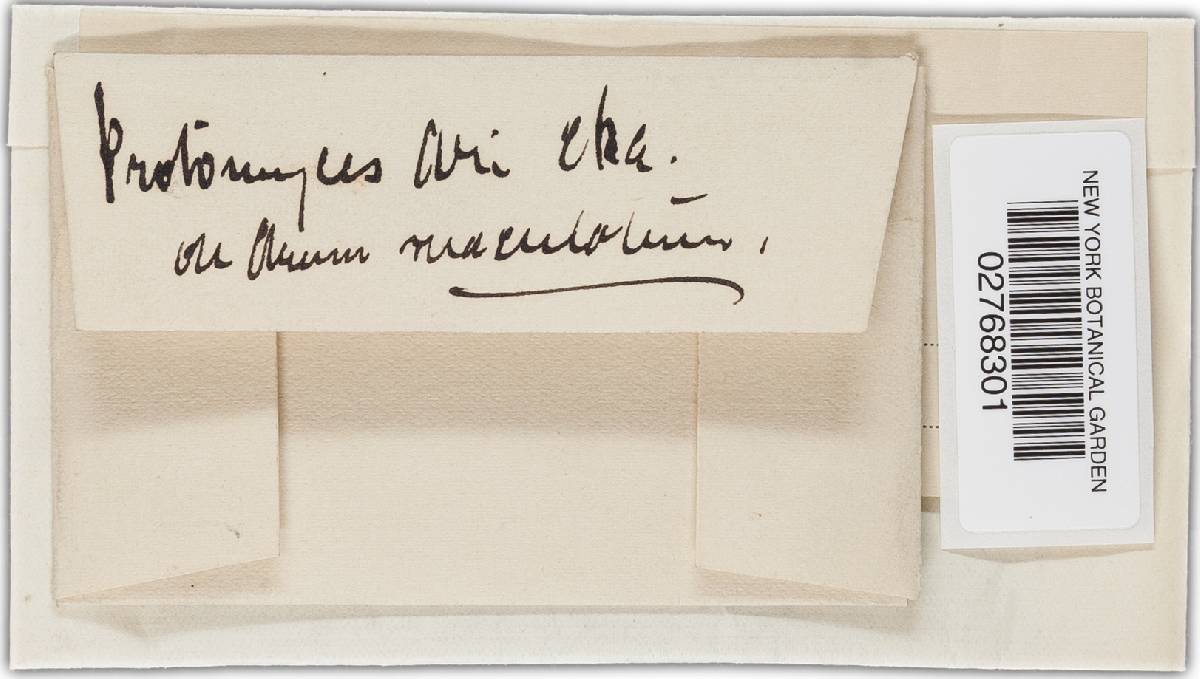 Protomyces Ari Cke.
on Arum maculatum.
NEW YORK BOTANICAL GARDEN
02768301